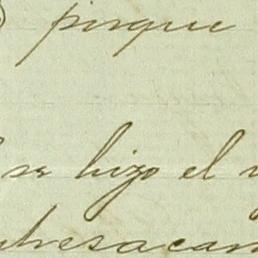 pisque
se hizo el
tresacam